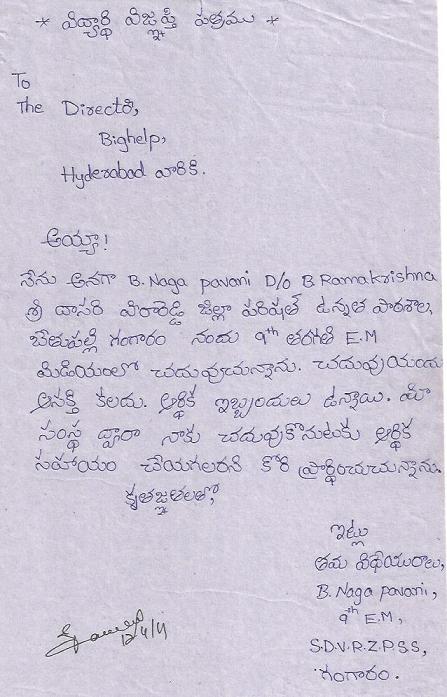 * విద్యార్థి విజ్ఞప్తి పత్రము *
To
The Director,
Bighelp,
Hyderabad వారికి.
అయ్యా!
నేను అనగా B. Naga pavani D/o B Ramakrishna
శ్రీ దాసరి వీరారెడ్డి జిల్లా పరిషత్ ఉన్నత పాఠశాల,
బేతుపల్లి గంగారం నందు 9th తరగతి E.M
మీడియంలో చదువుచున్నాను. చదువుయందు
ఆసక్తి కలదు. ఆర్థిక ఇబ్బందులు ఉన్నాయి. మీ
సంస్థ ద్వారా నాకు చదువుకొనుటకు ఆర్థిక
సహాయం చేయగలరని కోరి ప్రార్థించుచున్నాను.
కృతజ్ఞతలతో,
ఇట్లు
తమ విధేయురాలు,
B. Naga pavani,
9th E.M,
S.D.V.R.Z.P.S.S,
గంగారం.
12/4/11